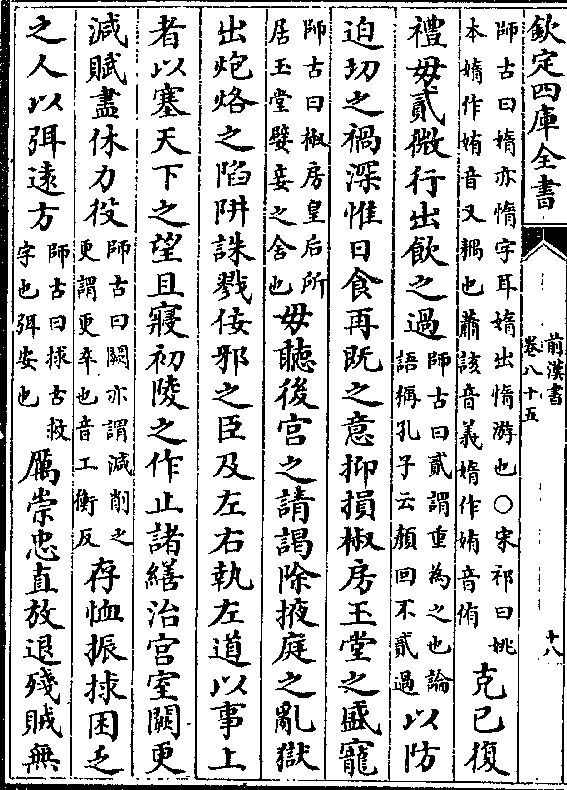 欽定四庫全書
前漢書
卷八十五
十八
師古曰媠亦惰字耳媠出惰游也○宋祁曰姚
本媠作姷音又耦也蕭該音義媠作姷音侑
克已復
禮毋貳微行出飲之過
師古曰貳謂重為之也論
語稱孔子云顔回不貳過
以防
迫切之禍深惟日食再既之意抑損椒房玉堂之盛寵
師古曰椒房皇后所
居玉堂嬖妾之舍也
毋聽後宮之請謁除掖庭之亂獄
出炮烙之陷阱誅戮佞邪之臣及左右執左道以事上
者以塞天下之望且寢初陵之作止諸繕治宮室闕更
減賦盡休力役
師古曰闕亦謂減削之
更謂更卒也音工衡反
存恤振捄困乏
之人以弭遠方
師古曰捄古救
字也弭安也
厲崇忠直放退殘賊無